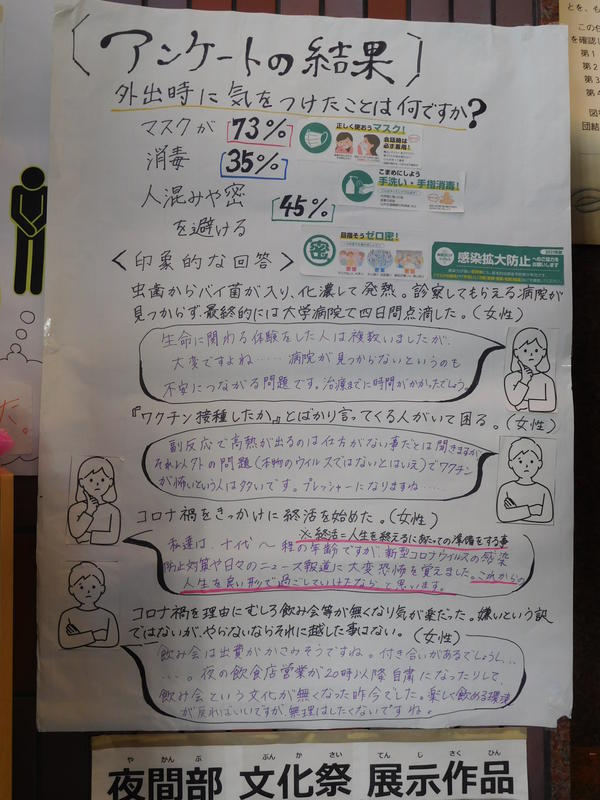 〔アンケートの結果〕
外出時に気をつけたことは何ですか?
マスクが 73%
正しく使おうマスク!
会話時は
必ず着用!
消毒 35%
こまめにしよう
手洗い・手指消毒!
人混みや密 45%
を避ける
目指そうゼロ密!
密
感染拡大防止
へのご協力を
お願いします
<印象的な回答>
虫歯からバイ菌が入り、化濃して発熱。診察してもらえる病院が
見つからず最終的には大学病院で四日間点滴した。(女性)
生命に関わる体験をした人は複数いましたが、
大変ですよね……病院が見つからないというのも
不安につながる問題です。治療までに時間がかかったでしょう。
『ワクチン接種したか』とばかり言ってくる人がいて困る。(女性)
副反応で高熱が出るのは仕方がない事だとは聞きますが
それ以外の問題(本物のウイルスではないとはいえ)でワクチン
が怖いという人は多いです。プレッシャーになりますね……
コロナ禍をきっかけに終活を始めた。(女性)
※終活=人生を終えるにあたっての準備をする事
私達は、十代〜 程の年齢ですが、新型コロナウイルスの感染
防止対策や日々のニュース報道に大変恐怖を覚えました。これからの
人生を良い形で過ごしていけたなら と思います。
コロナ禍を理由にむしろ飲み会等が無くなり気が楽だった。嫌いという訳
ではないが、やらないならそれに越した事はない。(女性)
飲み会は出費がかさみそうですね。付き合いがあるでしょうし、…
…。夜の飲食店営業が20時以降自粛になったりして、
飲み会という文化が無くなった昨今でした。楽しく飲める環境
が戻ればいいですが、無理はしたくないですね。
やかんぶ ぶんかさい てんじさくひん
夜間部 文化祭 展示作品